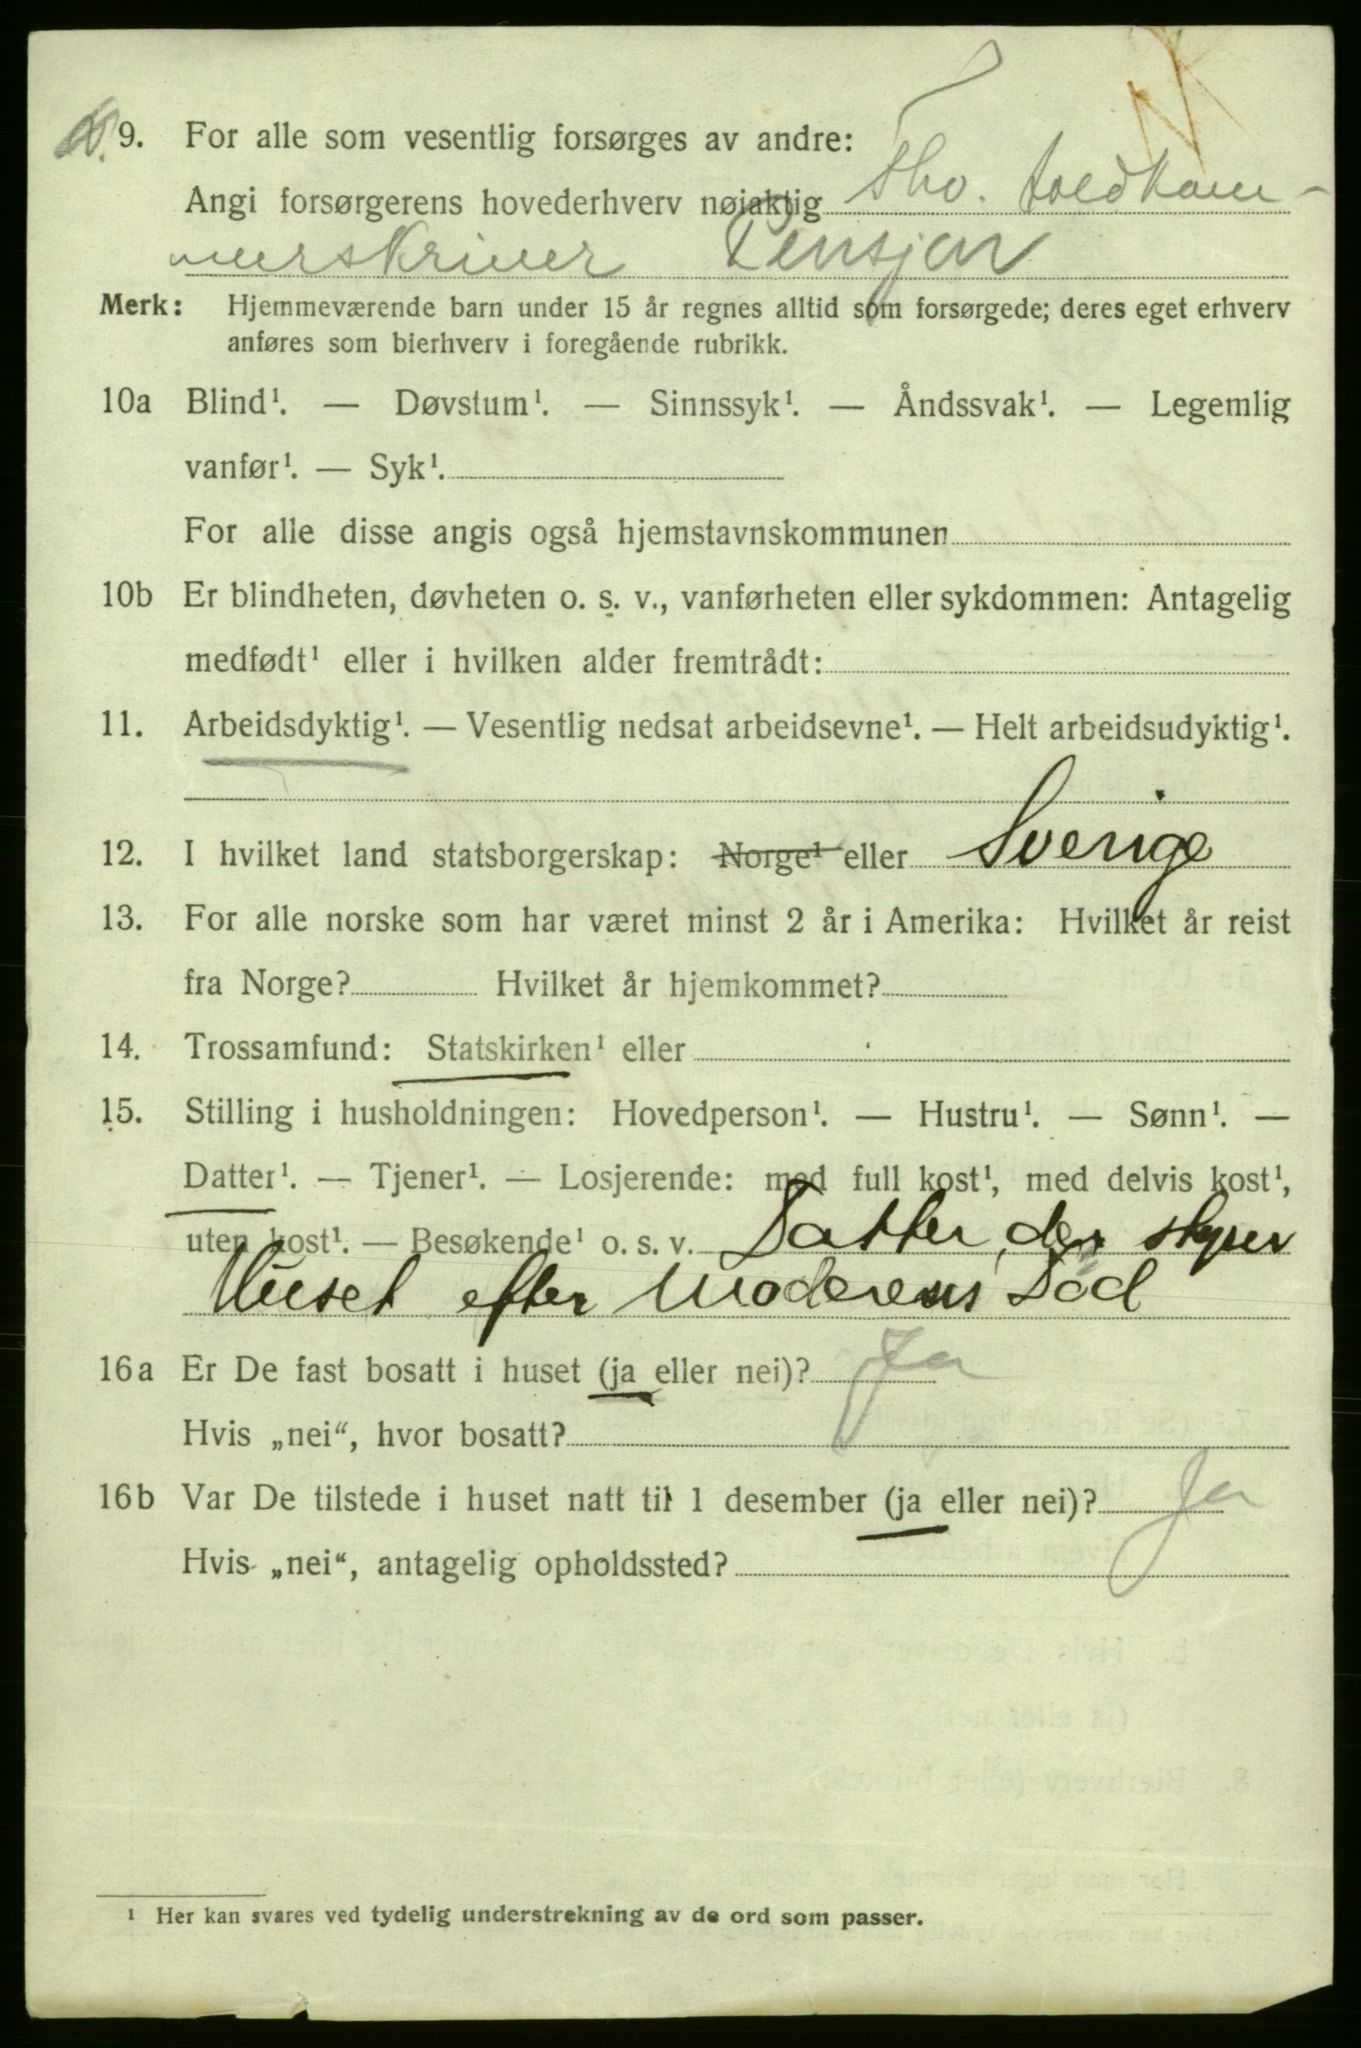 9. For alle som vesentlig forsørges av andre:
Angi forsørgerens hovederhverv nøiaktig Fhv. toldkam-
merskriver Pensjon
Merk: Hjemmeværende barn under 15 år regnes alltid som forsørgede; deres eget erhverv
anføres som bierhverv i foregående rubrikk.
10a Blind¹. — Døvstum¹. — Sinnssyk¹. — Åndssvak¹. — Legemlig
vanfør¹. — Syk¹.
For alle disse angis også hjemstavnskommunen
10b Er blindheten, døvheten o. s. v., vanførheten eller sykdommen: Antagelig
medfødt¹ eller i hvilken alder fremtrådt:
11. Arbeidsdyktig¹. — Vesentlig nedsat arbeidsevne¹. — Helt arbeidsudyktig¹.
12. I hvilket land statsborgerskap: Norge¹ eller Sverige
13. For alle norske som har været minst 2 år i Amerika: Hvilket år reist
fra Norge? Hvilket år hjemkommet?
14. Trossamfund: Statskirken¹ eller
15. Stilling i husholdningen: Hovedperson¹. — Hustru¹. — Sønn¹. —
Datter¹. — Tjener¹. — Losjerende: med full kost¹, med delvis kost¹,
uten kost¹. — Besøkende¹ o. s. v. Datter, der styrer
Huset efter Moderens Død
16a Er De fast bosatt i huset (ja eller nei)? Ja
Hvis „nei“, hvor bosatt?
16b Var De tilstede i huset natt til 1 desember (ja eller nei)? Ja
Hvis „nei“, antagelig opholdssted?
¹ Her kan svares ved tydelig understrekning av de ord som passer.